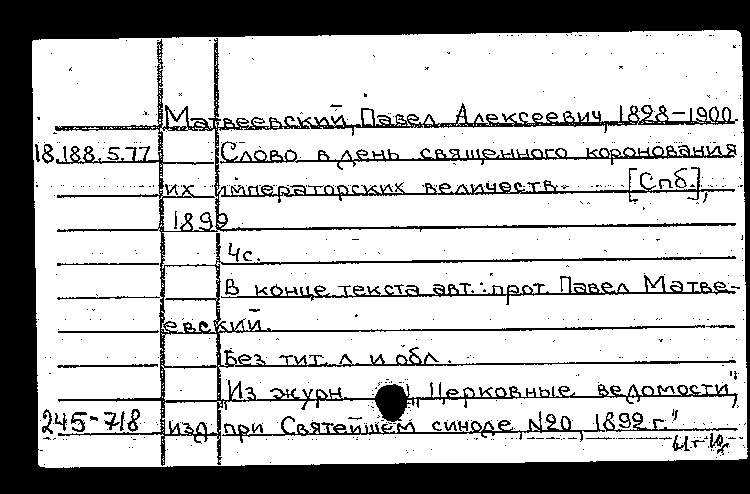 Матвеевский, Павел Алексеевич, 1828-1900
18.188.5.77 Слово в день священного коронования
их императорских величеств. [Спб.],
1899
4с.
В конце текста авт.: прот. Павел Матве-
евский.
Без тит. л. и обл.
„Из журн. „Церковные ведомости",
245-718 изд. при Святейшем синоде, N20, 1892 г."